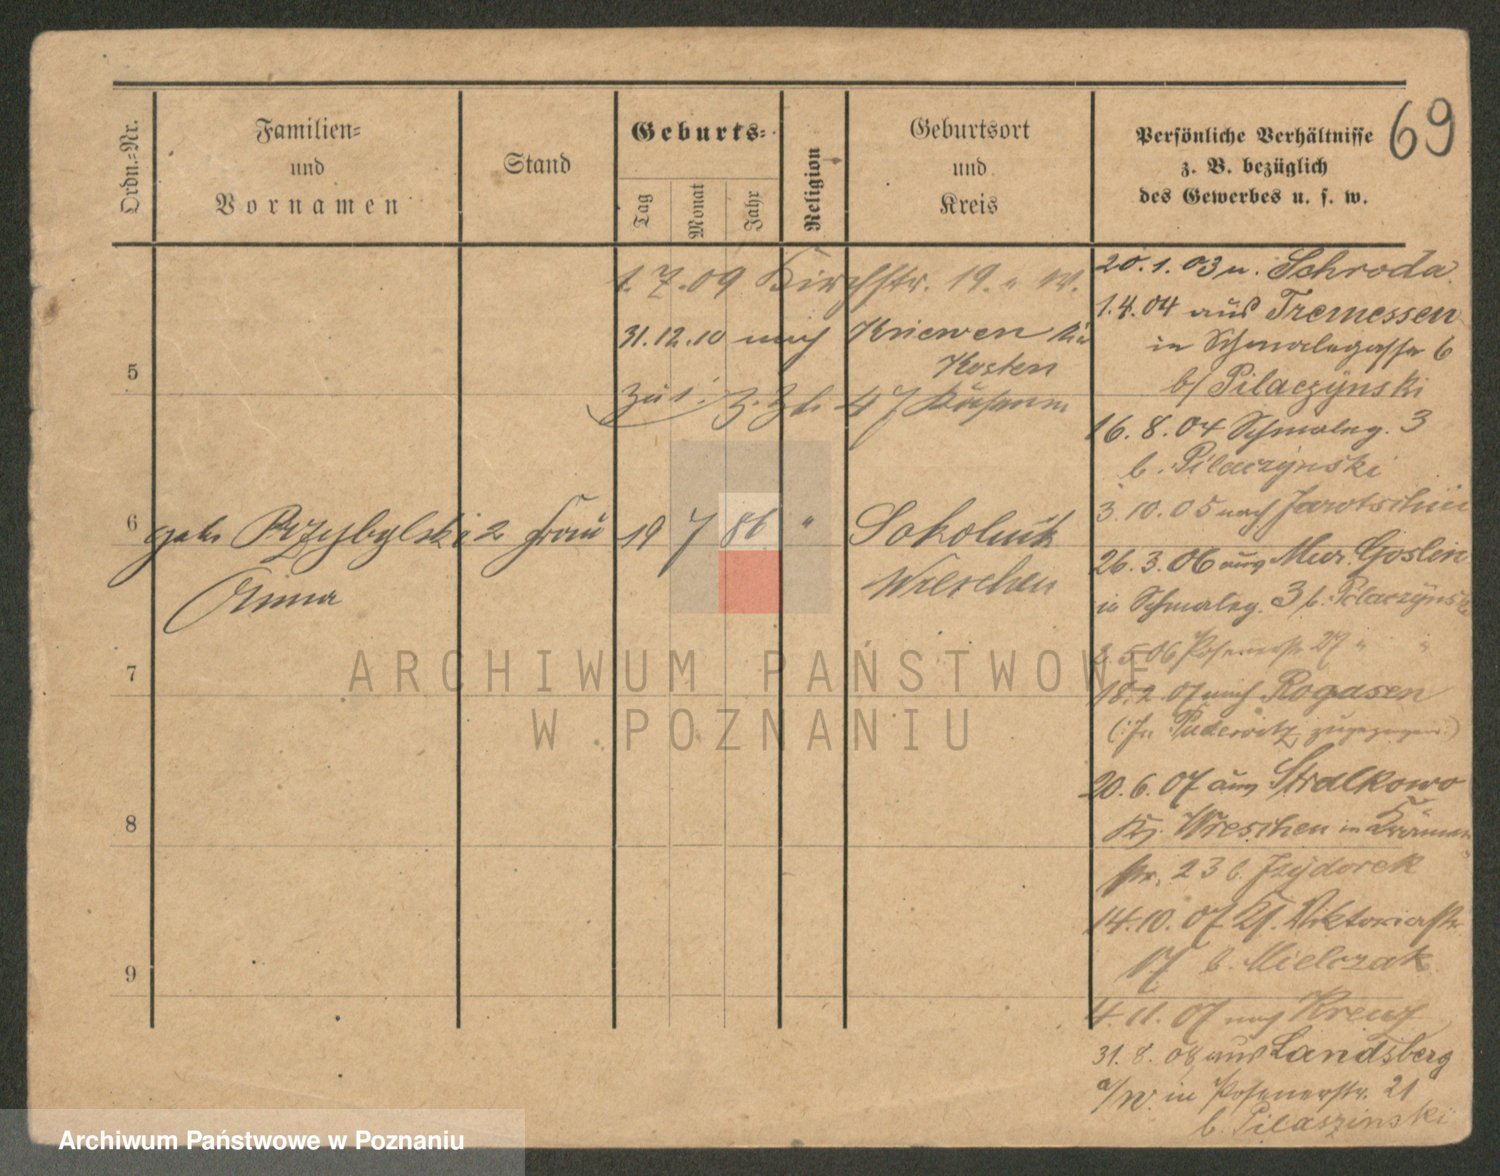 69
Ordn.=Nr.
Familien=
und
Vornamen
Stand
Geburts=
Tag
Monat
Jahr
Religion
Geburtsort
und
Kreis
Persönliche Verhältnisse
z. B. bezüglich
des Gewerbes u. s. w.
1.7.09 Kirchstr. 19.
31.12.10 nach Kriewen
Kosten
5
6
geb. Przybylski 2 Frau 19 7 86 "
Anna
Sokolnik
Wreschen
7
8
9
20.1.03 n. Schroda
1.4.04 aus Tremessen
in Schmalegasse 6
b/ Pilaczynski
16.8.04 Schmaleg. 3
b. Pilaczynski
3.10.05 nach Jarotschin
26.3.06 aus Mur. Goslin
in Schmaleg. 3 b. Pilaczynski
2.5.06 Posenerstr 27 " "
18.2.07 nach Rogasen
(: In Pudewitz zugezogen :)
20.6.07 aus Stralkowo
Kr. Wreschen in Krämer
str. 23 b. Izydorek
14.10.07 Kl. Viktoriastr.
17 b. Mielczak
4.11.07 nach Kreuz
31.8.08 aus Landsberg
a/W. in Posenerstr. 21
b. Pilaszinski
ARCHIWUM PAŃSTWOWE
W POZNANIU
Archiwum Państwowe w Poznaniu